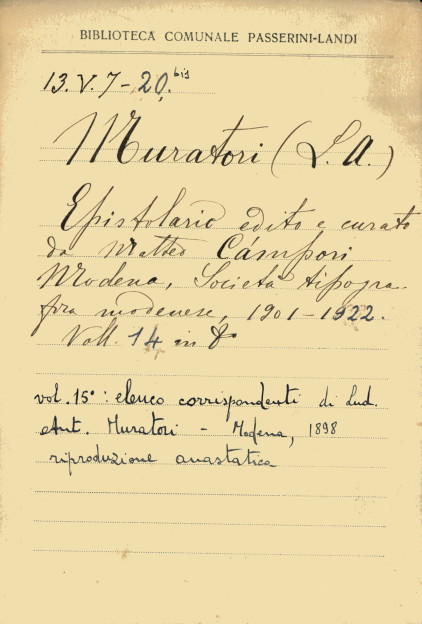 BIBLIOTECA COMUNALE PASSERINI-LANDI
13. V. 7 - 20. bis
Muratori (L. A.)
Epistolario edito e curato
da Matteo Cámpori
Modena, Società tipogra-
fica modenese, 1901-1922.
Voll. 14 in 8°
vol. 15°: elenco corrispondenti di Lud.
Ant. Muratori - Modena, 1898
riproduzione anastatica